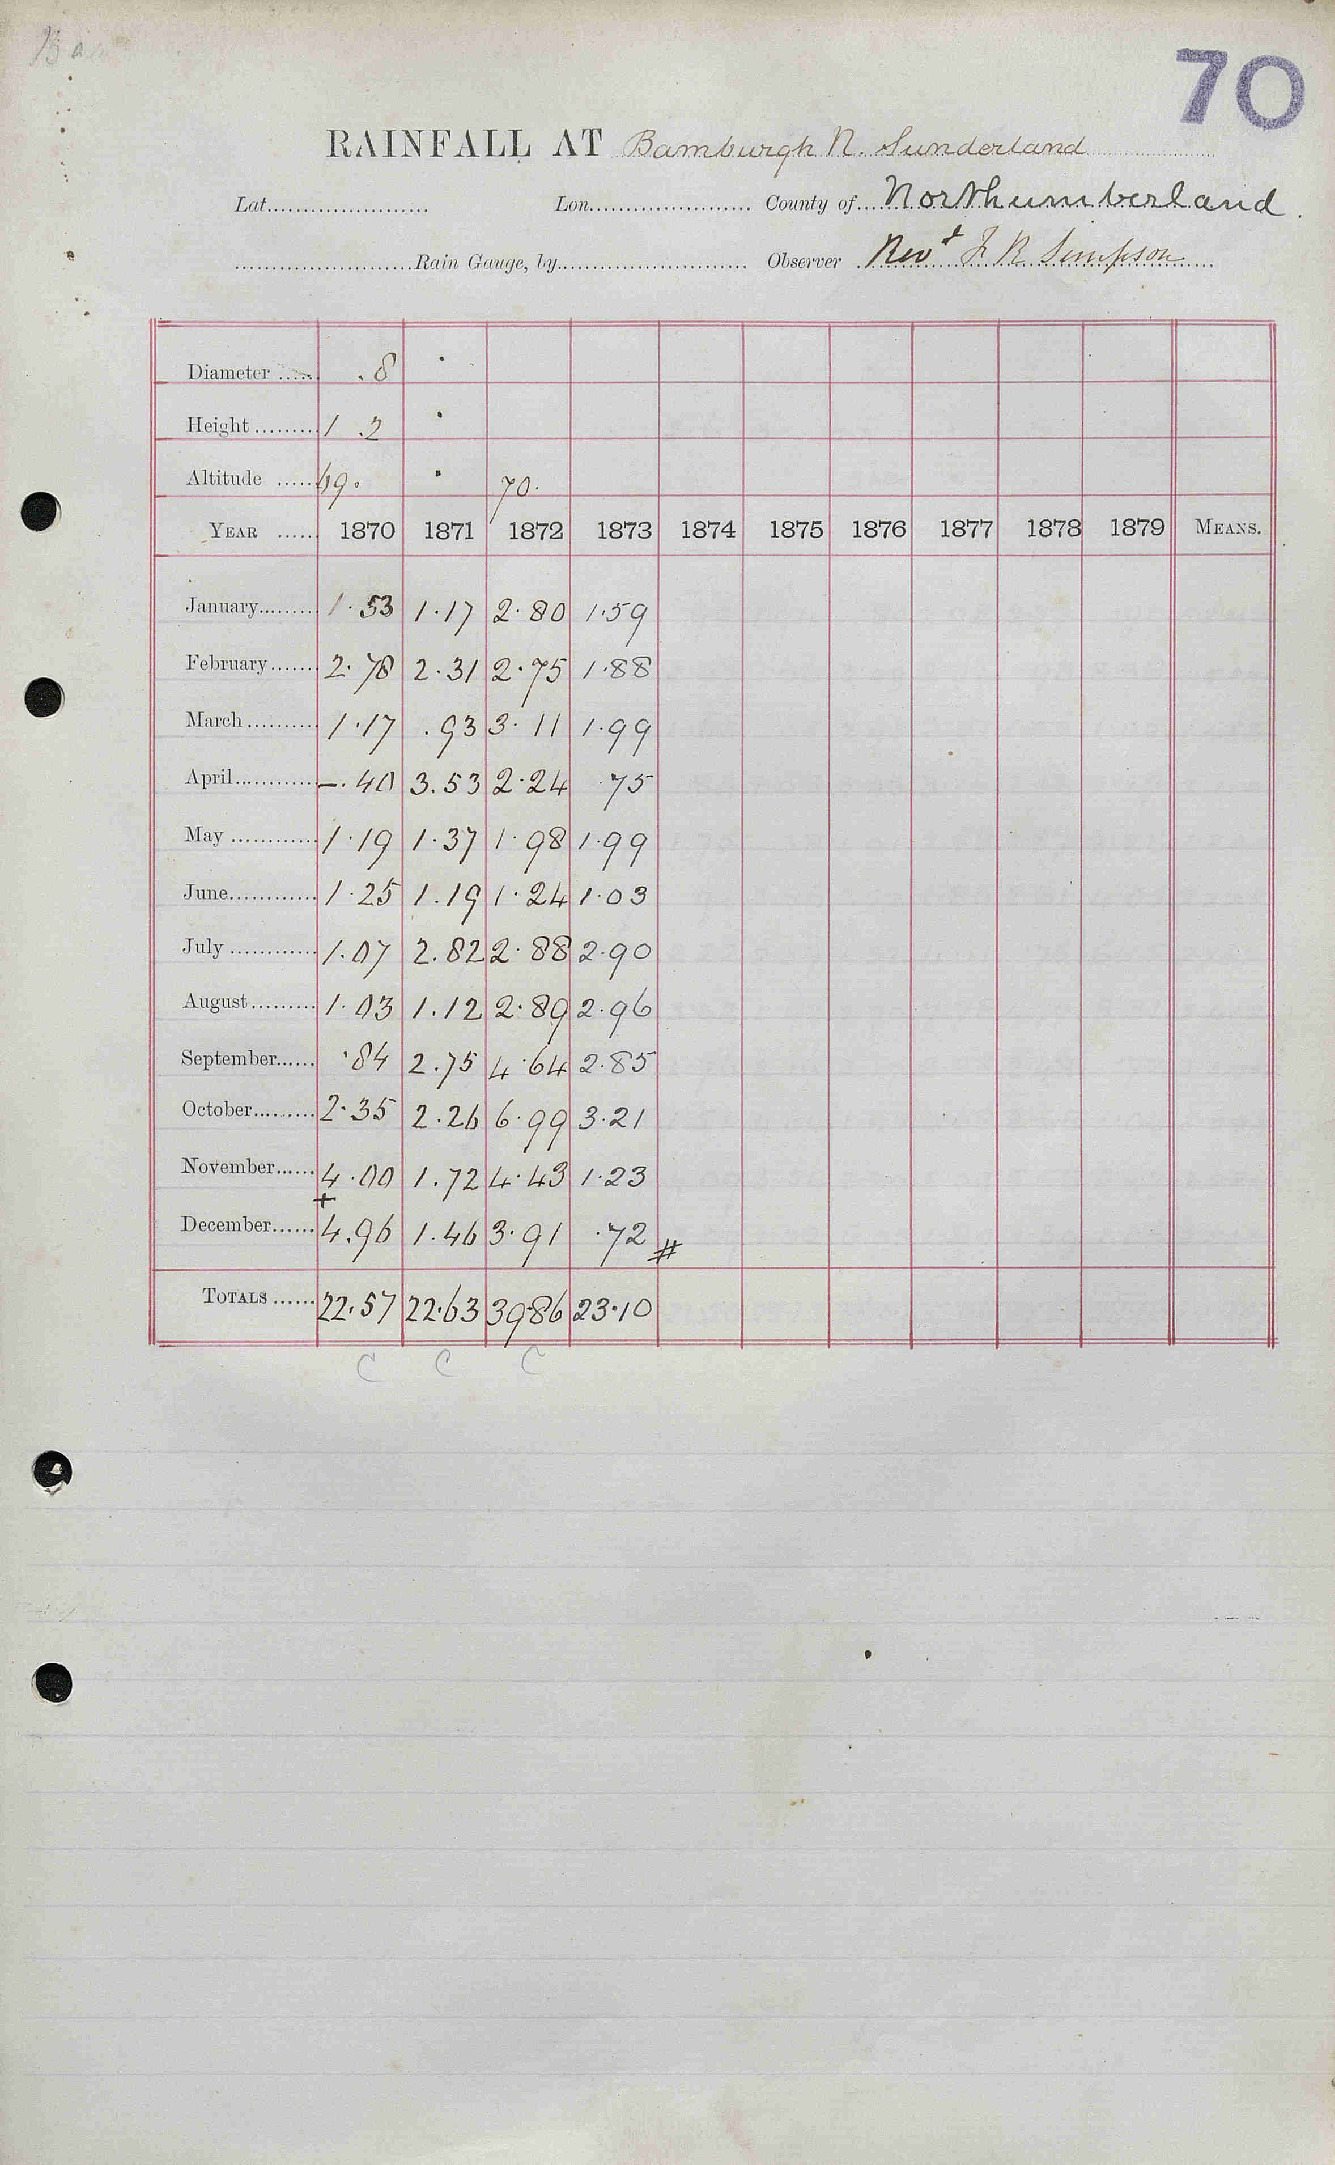 Ba
70
RAINFALL AT Bamburgh N. Sunderland
Lat. Lon. County of Northumberland.
Rain Gauge, by Observer Revd F R Simpson
Diameter .8 .
Height 1 .2 .
Altitude 69. . 70.
YEAR 1870 1871 1872 1873 1874 1875 1876 1877 1878 1879 MEANS.
January 1.53 1.17 2.80 1.59
February 2.78 2.31 2.75 1.88
March 1.17 .93 3.11 1.99
April —.40 3.53 2.24 .75
May 1.19 1.37 1.98 1.99
June 1.25 1.19 1.24 1.03
July 1.07 2.82 2.88 2.90
August 1.03 1.12 2.89 2.96
September .84 2.75 4.64 2.85
October 2.35 2.26 6.99 3.21
November 4.00 1.72 4.43 1.23
+
December 4.96 1.46 3.91 .72 #
TOTALS 22.57 22.63 39.86 23.10
C C C